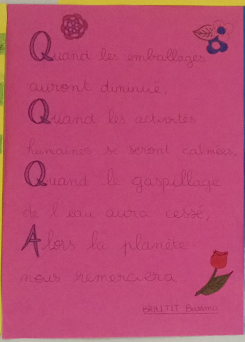 Quand les emballages
auront diminué,
Quand les activités
humaines se seront calmées,
Quand le gaspillage
de l'eau aura cessé,
Alors la planète
nous remerciera